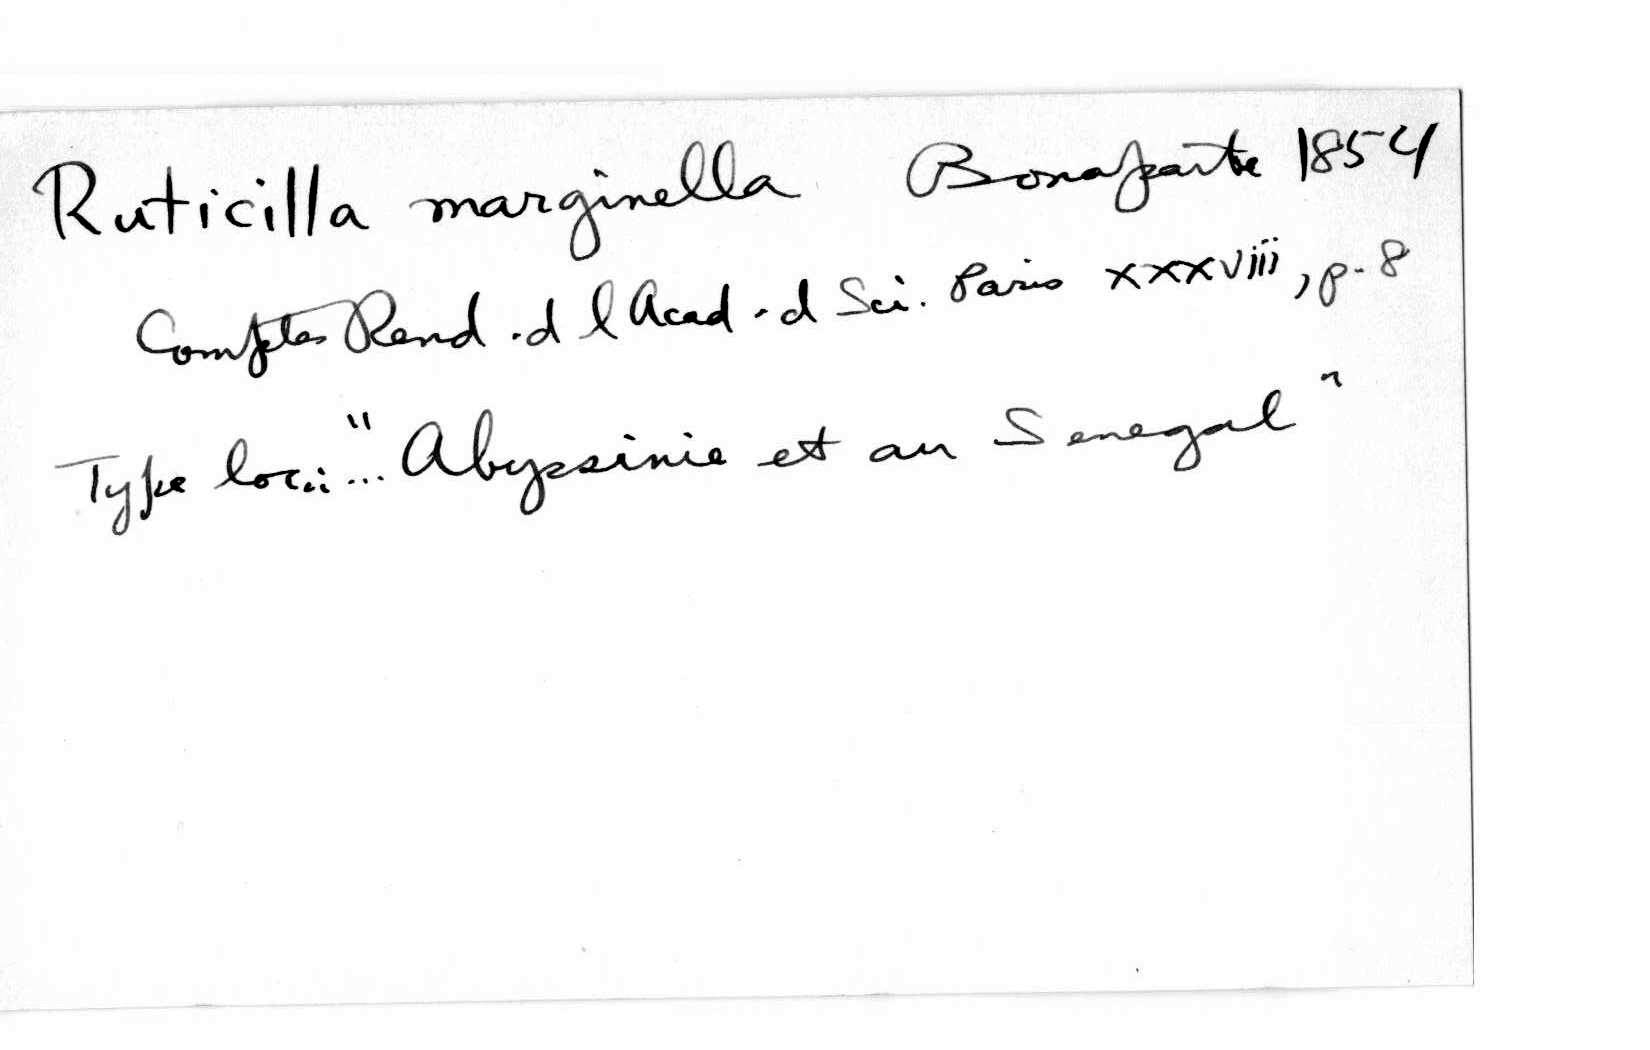 Ruticilla marginella Bonaparte 1854
Comptes Rend. d l Acad. d Sci. Paris xxxviii, p. 8
Type loci: "... Abyssinie et au Senegal"